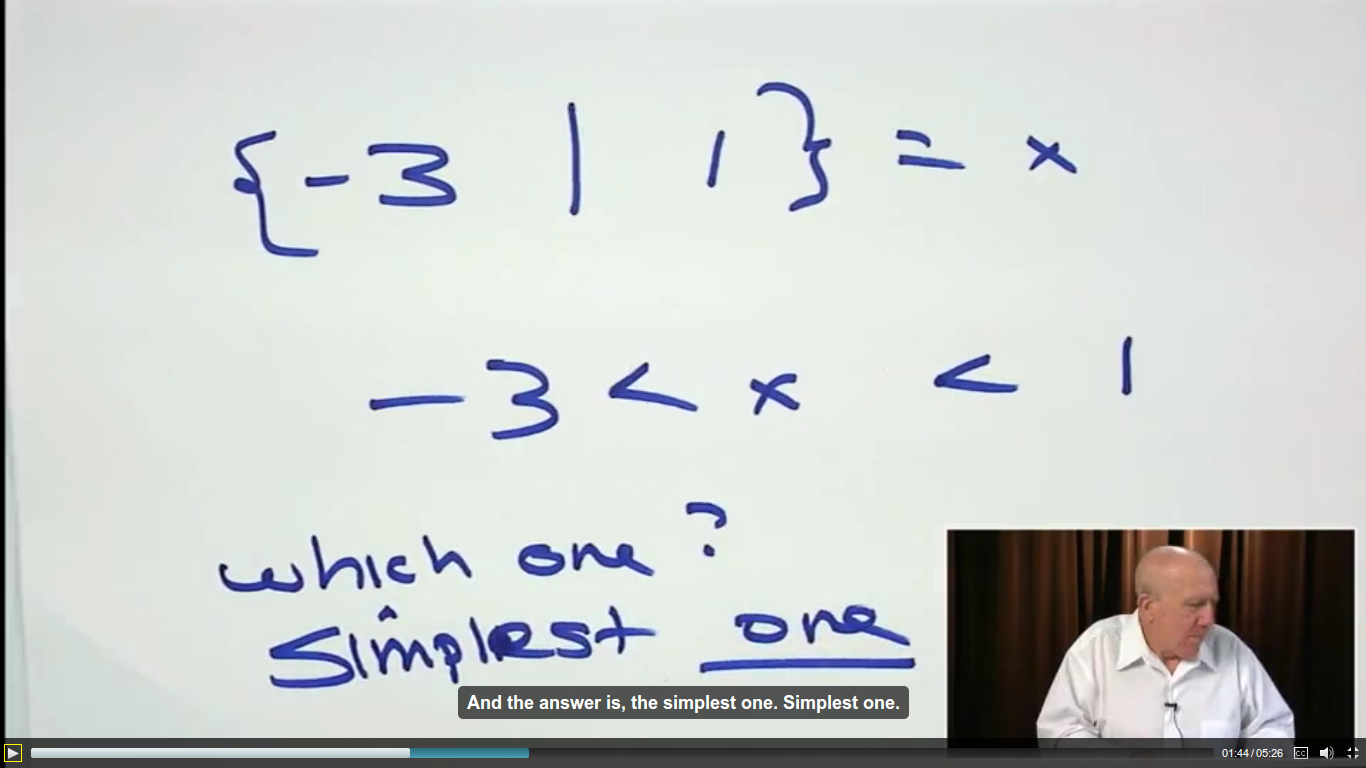 {-3 | 1} = x
-3 < x < 1
which one?
simplest one
And the answer is, the simplest one. Simplest one.
01:44/05:26
CC